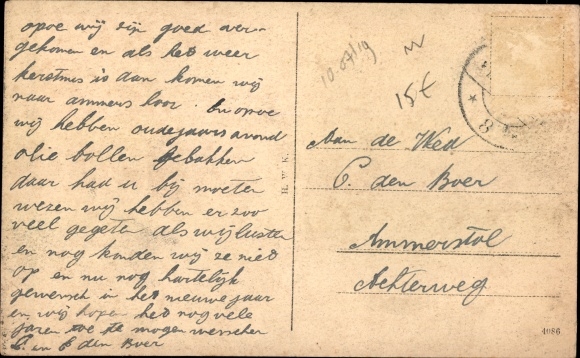 opoe wij zijn goed over-
gekomen en als het weer
kerstmis is dan komen wij
naar ammers hoor. En opoe
wij hebben oudejaars avond
olie bollen gebakken
daar had u bij moeten
wezen wij hebben er zoo
veel gegeten als wij lusten
en nog konden wij ze niet
op en nu nog hartelijk
gewenscht in het nieuwe jaar
en wij hopen het nog vele
jaren toe te mogen wenschen
C. en P den Boer
H. W. K.
10.07/19
15€
8
Aan de Wed
C. den Boer
Ammerstol
Achterweg
4086